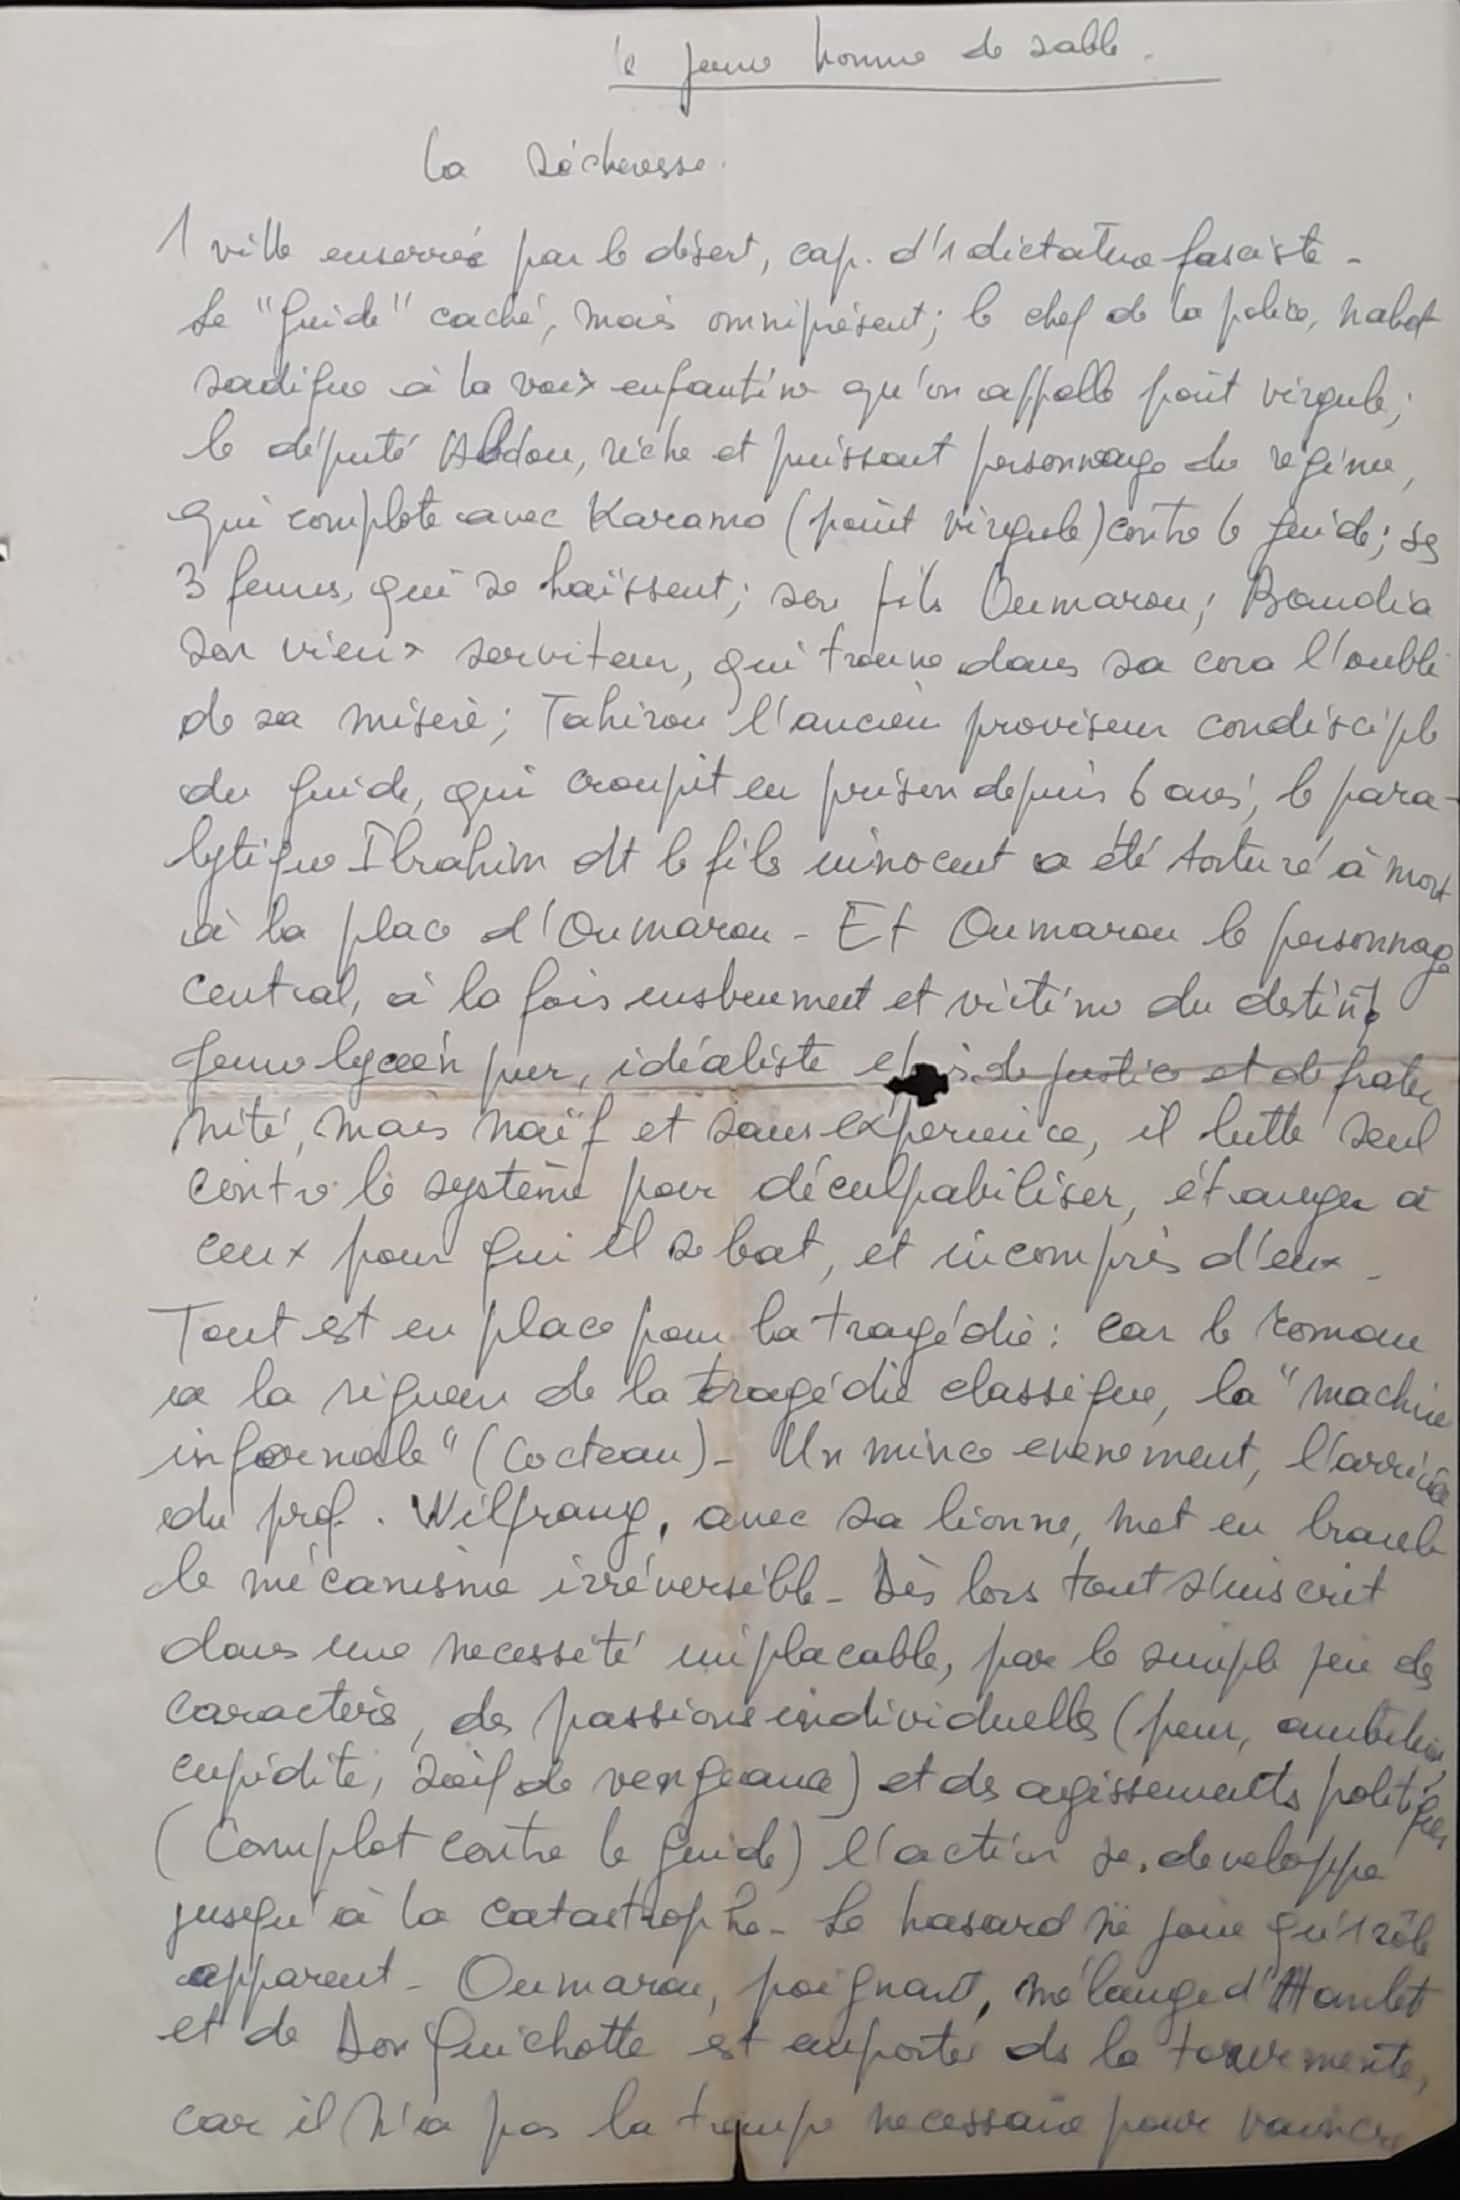 le jeune homme de sable.
La sécheresse.
1 ville enserrée par le désert, cap. d'1 dictature fasciste -
Le "Guide" caché, mais omniprésent; le chef de la police, nabot
sadique à la voix enfantine qu'on appelle point virgule;
le député Abdou, riche et puissant personnage du régime,
qui complote avec Karamo (point virgule) contre le guide; ses
3 femmes, qui se haïssent; son fils Oumarou; Bandia
son vieux serviteur, qui trouve dans sa cora l'oubli
de sa misère; Tahirou l'ancien proviseur condisciple
du guide, qui croupit en prison depuis 6 ans; le para-
lytique Ibrahim dt le fils innocent a été torturé à mort
à la place d'Oumarou - Et Oumarou le personnage
central, à la fois instrument et victime du destin,
jeune lycéen pur, idéaliste épris de justice et de frater
nité, mais naïf et sans experience, il lutte seul
contre le système pour déculpabiliser, étranger à
ceux pour qui il se bat, et incompris d'eux -
Tout est en place pour la tragédie: car le roman
a la rigueur de la tragédie classique, la "machine
infernale" (Cocteau) - Un mince evenement, l'arrivée
du prof. Wilfrang, avec sa lionne, met en branle
le mécanisme irréversible - Dès lors tout s'inscrit
dans une necessité implacable, par le simple jeu des
caractères, des passions individuelles (peur, ambition,
cupidité, soif de vengeance) et des agissements politiques
(Complot contre le guide) l'action se developpe
jusqu'à la catastrophe - Le hasard ne joue qu'1 rôle
apparent - Oumarou, poignant, mélange d'Hamlet
et de Don Quichotte est emporté ds la tourmente,
car il n'a pas la trempe necessaire pour vaincre